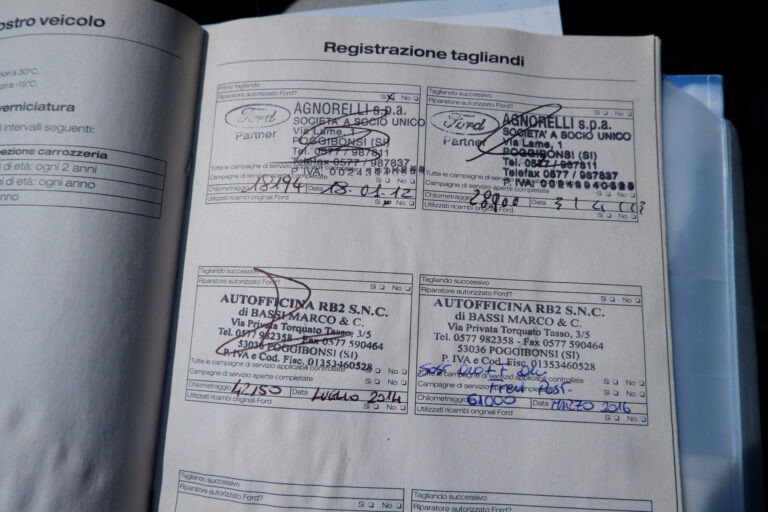 ostro veicolo
iori a 30°C.
ori a -15°C.
verniciatura
i intervalli seguenti:
pezione carrozzeria
i di età: ogni 2 anni
i di età: ogni anno
anno
Registrazione tagliandi
Primo tagliando
Riparatore autorizzato Ford? Sì No
Ford
Partner
AGNORELLI s.p.a.
SOCIETA' A SOCIO UNICO
Via Lame, 1
POGGIBONSI (SI)
Tel. 0577 / 987811
Telefax 0577 / 987837
P. IVA:
Tutte le campagne di servizio
Campagne di servizio aperte completate Sì No
Chilometraggio 18194 Data 18.01.12
Utilizzati ricambi originali Ford Sì No
Tagliando successivo
Riparatore autorizzato Ford? Sì No
Ford
Partner
AGNORELLI s.p.a.
SOCIETA' A SOCIO UNICO
Via Lame, 1
POGGIBONSI (SI)
Tel. 0577/987811
Telefax 0577 / 987837
P. IVA: 00242940525
Tutte le campagne di servizio
Campagne di servizio aperte completate
Chilometraggio 28900 Data
Utilizzati ricambi originali Ford Sì No
Tagliando successivo
Riparatore autorizzato Ford? Sì No
AUTOFFICINA RB2 S.N.C.
di BASSI MARCO & C.
Via Privata Torquato Tasso, 3/5
Tel. 0577 982358 - Fax 0577 590464
53036 POGGIBONSI (SI)
P. IVA e Cod. Fisc. 01353460528
Tutte le campagne di servizio applicabili controllate Sì No
Campagne di servizio aperte completate Sì No
Chilometraggio 42150 Data LUGLIO 2014
Utilizzati ricambi originali Ford Sì No
Tagliando successivo
Riparatore autorizzato Ford? Sì No
AUTOFFICINA RB2 S.N.C.
di BASSI MARCO & C.
Via Privata Torquato Tasso, 3/5
Tel. 0577 982358 - Fax 0577 590464
53036 POGGIBONSI (SI)
P. IVA e Cod. Fisc. 01353460528
Tutte le campagne di servizio applicabili controllate Sì No
Campagne di servizio aperte completate Sì No
Freni Post.
Chilometraggio 61000 Data MARZO 2016
Utilizzati ricambi originali Ford Sì No
Tagliando successivo
Riparatore autorizzato Ford? Sì No
Tagliando successivo
Riparatore autorizzato Ford? Sì No